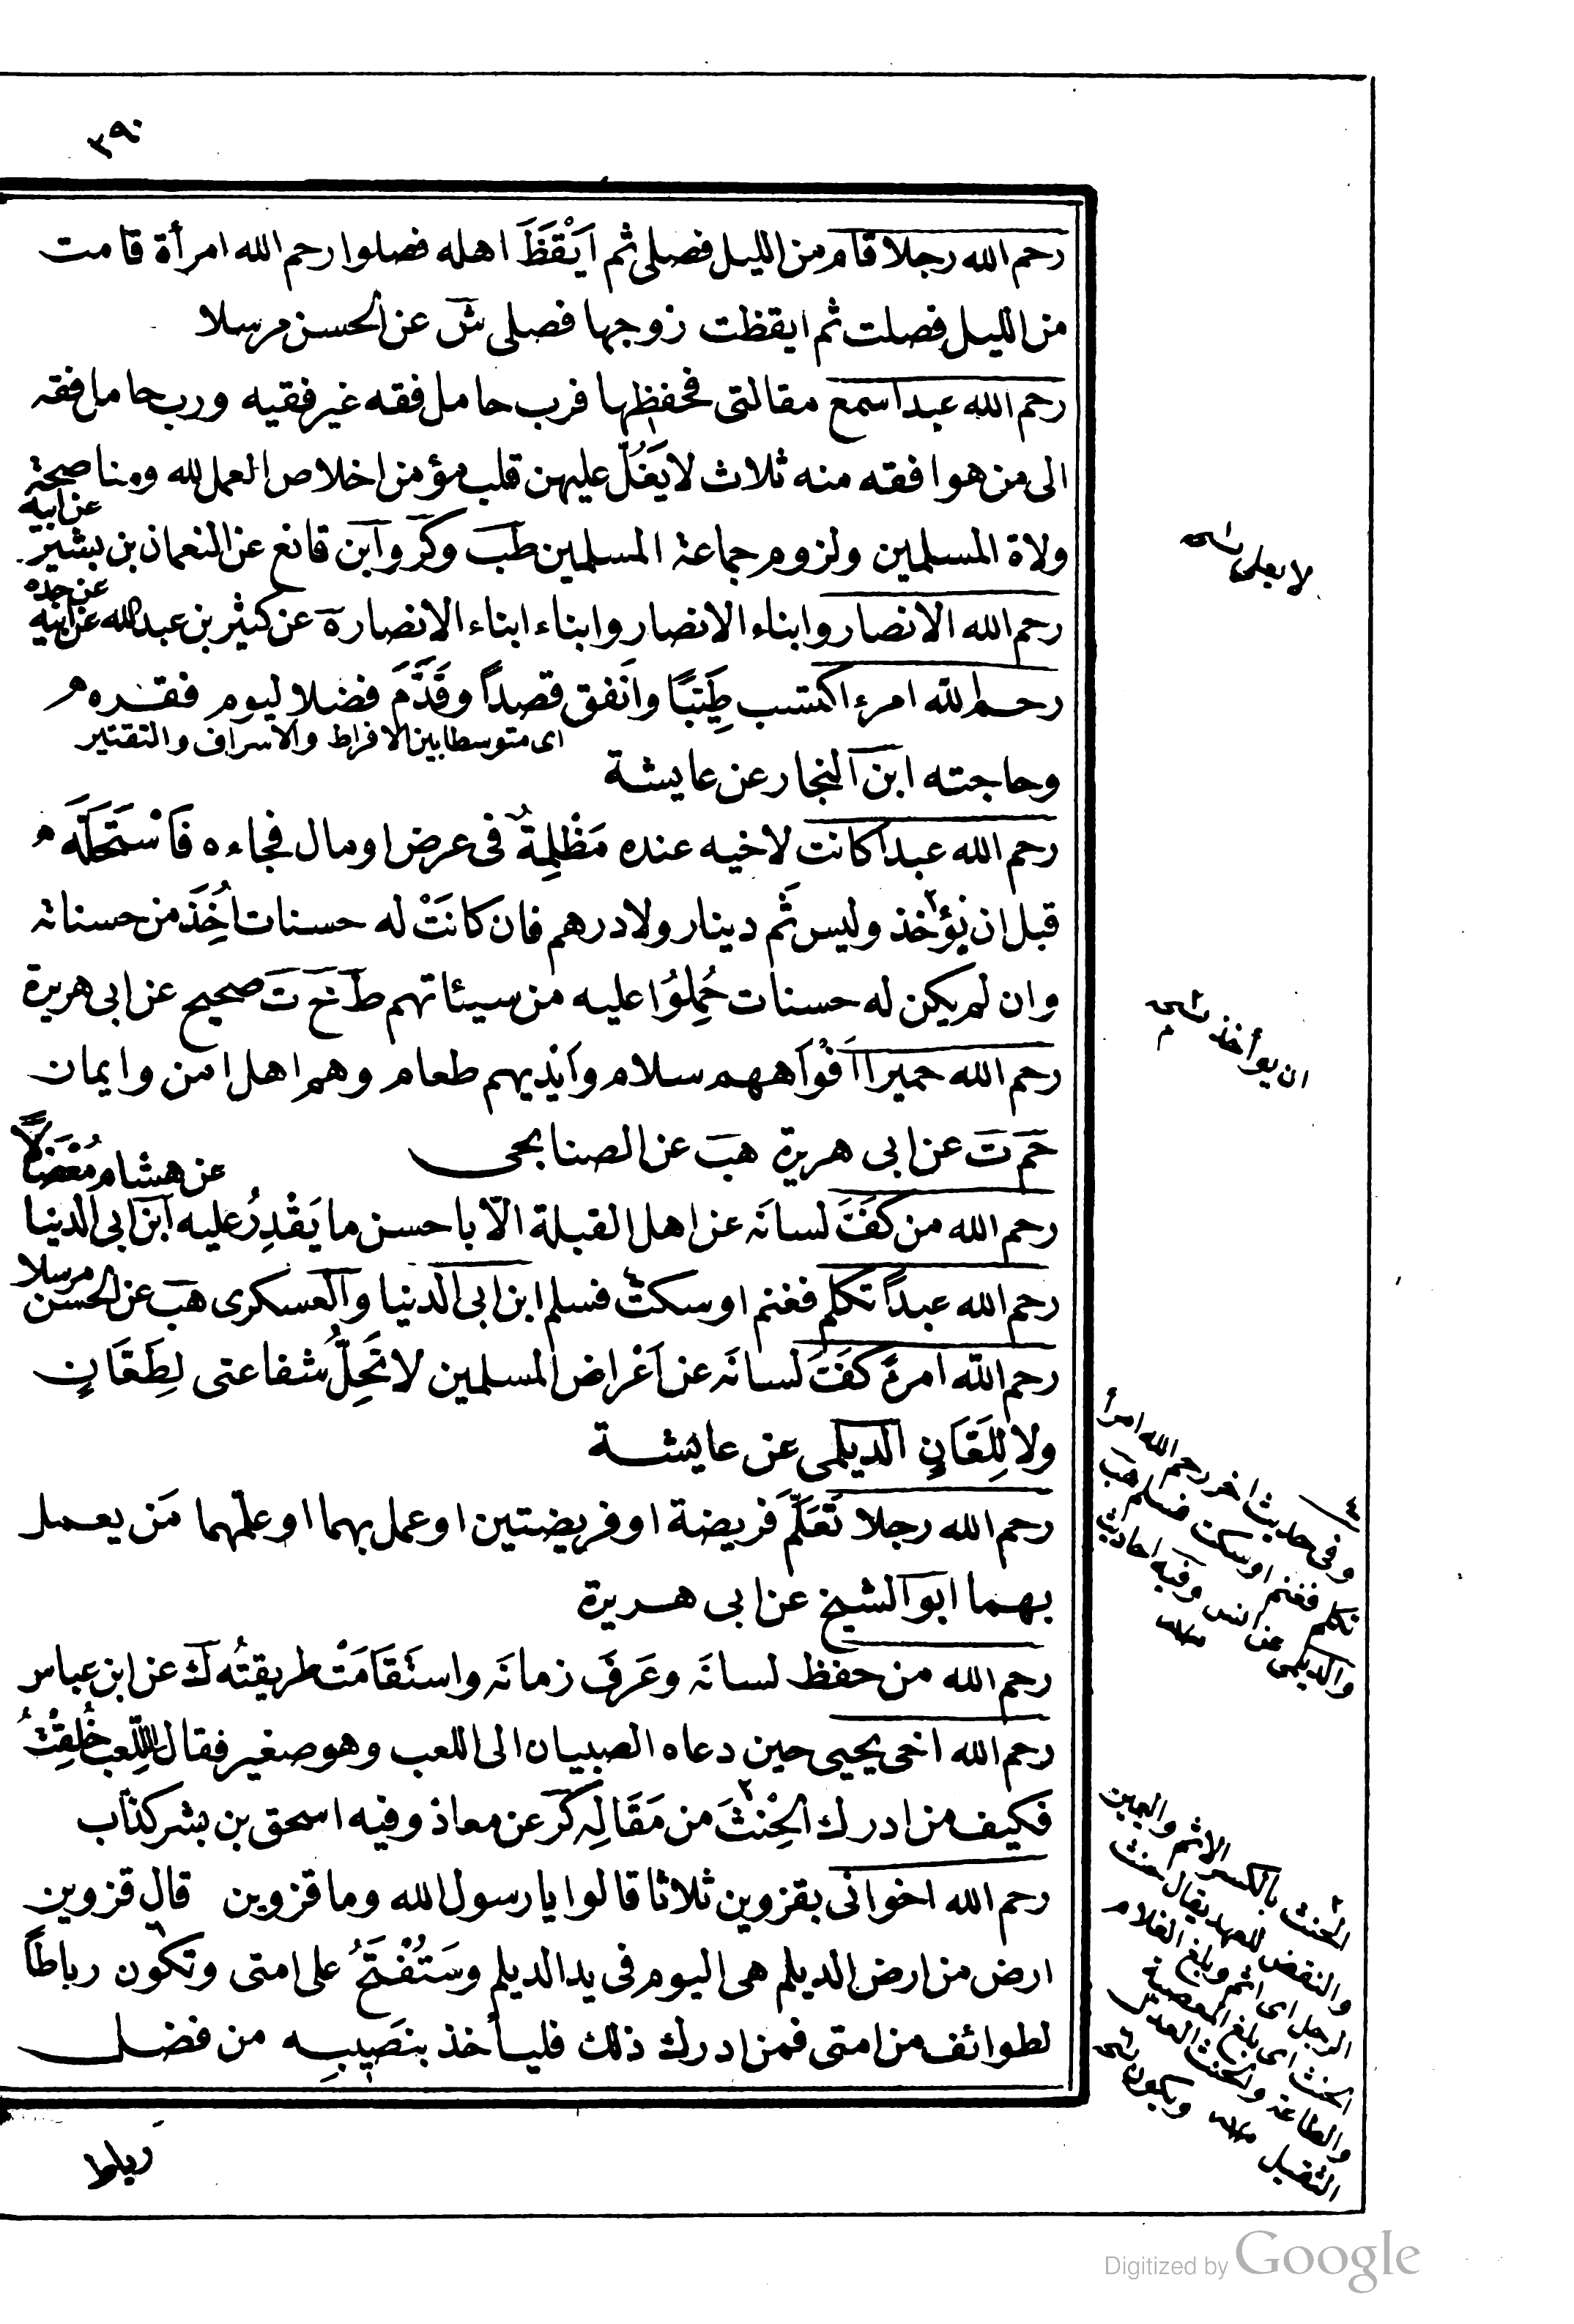 ٣٩٠
رحم الله رجلا قام من الليل فصلى ثم اَيْقَظَ اهله فصلوا رحم الله امرأة قامت
من الليل فصلت ثم ايقظت زوجها فصلى ش عن الحسن مرسلا
رحم الله عبدا سمع مقالتى فحفظها فرب حامل فقه غير فقيه ورب حامل فقه
الى من هو افقه منه ثلاث لا يَغُلّ عليهن قلب مؤمن اخلاص العمل لله ومناصحة
ولاة المسلمين ولزوم جماعة المسلمين طب وكر وابن قانع عن النعمان بن بشير عن ابيه
رحم الله الانصار وابناء الانصار وابناء ابناء الانصار ه عن كثير بن عبد الله عن ابيه عن جده
رحم الله امرء اكتسب طَيِّبًا واَنفق قصداً وقَدَّمَ فضلا ليوم فقره
اى متوسطا بين الافراط والاسراف والتقتير
وحاجته ابن النجار عن عايشة
رحم الله عبدا كانت لاخيه عنده مَظْلِمةٌ فى عرض او مال فجاءه فَاسْتَحَلَّهَ
قبل ان يؤخذ وليس ثَم دينار ولا درهم فان كانَتْ له حسنات اُخِذَ من حسناته
وان لم يكن له حسنات حُمِلوُا عليه من سيئاتهم ط خ ت صحيح عن ابى هريرة
رحم الله حميرا اَفْوَاههم سلام واَيْديهم طعام وهم اهل امن وايمان
حم ت عن ابى هريرة هب عن الصنابحى
رحم الله من كَفَّ لسانَه عن اهل القبلة الّا باحسن ما يَقْدِرُ عليه ابن ابى الدنيا عن هشام مُعْضَلًا
رحم الله عبداً تكلم فغنم او سكت فسلم ابن ابى الدنيا والعسكرى هب عن الحسن مرسلا
رحم الله امرءً كَفَّ لسانَه عن اَعْراض المسلمين لا تَحِلُّ شفاعتى لِطَعَّانٍ
ولا لِلَعَّانٍ الديلمى عن عايشة
رحم الله رجلا تَعَلَّمَ فريضة او فريضتين او عمل بهما او علّمهما مَن يعمل
بهما ابو الشيخ عن ابى هريرة
رحم الله من حفظ لسانَه وعَرَفَ زمانَه واستَقَامَتْ طريقتُه ك عن ابن عباس
رحم الله اخى يحيى حين دعاه الصبيان الى اللعب وهو صغير فقال اَلِلَّعب خُلِقْتُ
فكيف من ادرك الحِنْثَ من مَقَالِه كر عن معاذ وفيه اسحق بن بشر كذاب
رحم الله اخوانى بقزوين ثلاثا قالوا يا رسول الله وما قزوين قال قزوين
ارض من ارض الديلم هى اليوم فى يد الديلم وسَتُفْتَحُ على امتى وتكون رباطاً
لطوائف من امتى فمن ادرك ذلك فليأخذ بنصيبه من فضل
رباط
لا يغل نسخه
ان يوأخذ نسخه م
٤ وفى حديث اخر رحم الله امرأ
تكلم فغنم او سكت فسلم هب
والديلمى عن انس وفيه احاديث
٢ الحنث بالكسر الاثم واليمين
والنقض للعهد يقال حنث
الرجل اى اثم وبلغ الغلام
الحنث اى بلغ المعصية
والطاعة والحنث العدل
الثقيل
ويكون نسخه